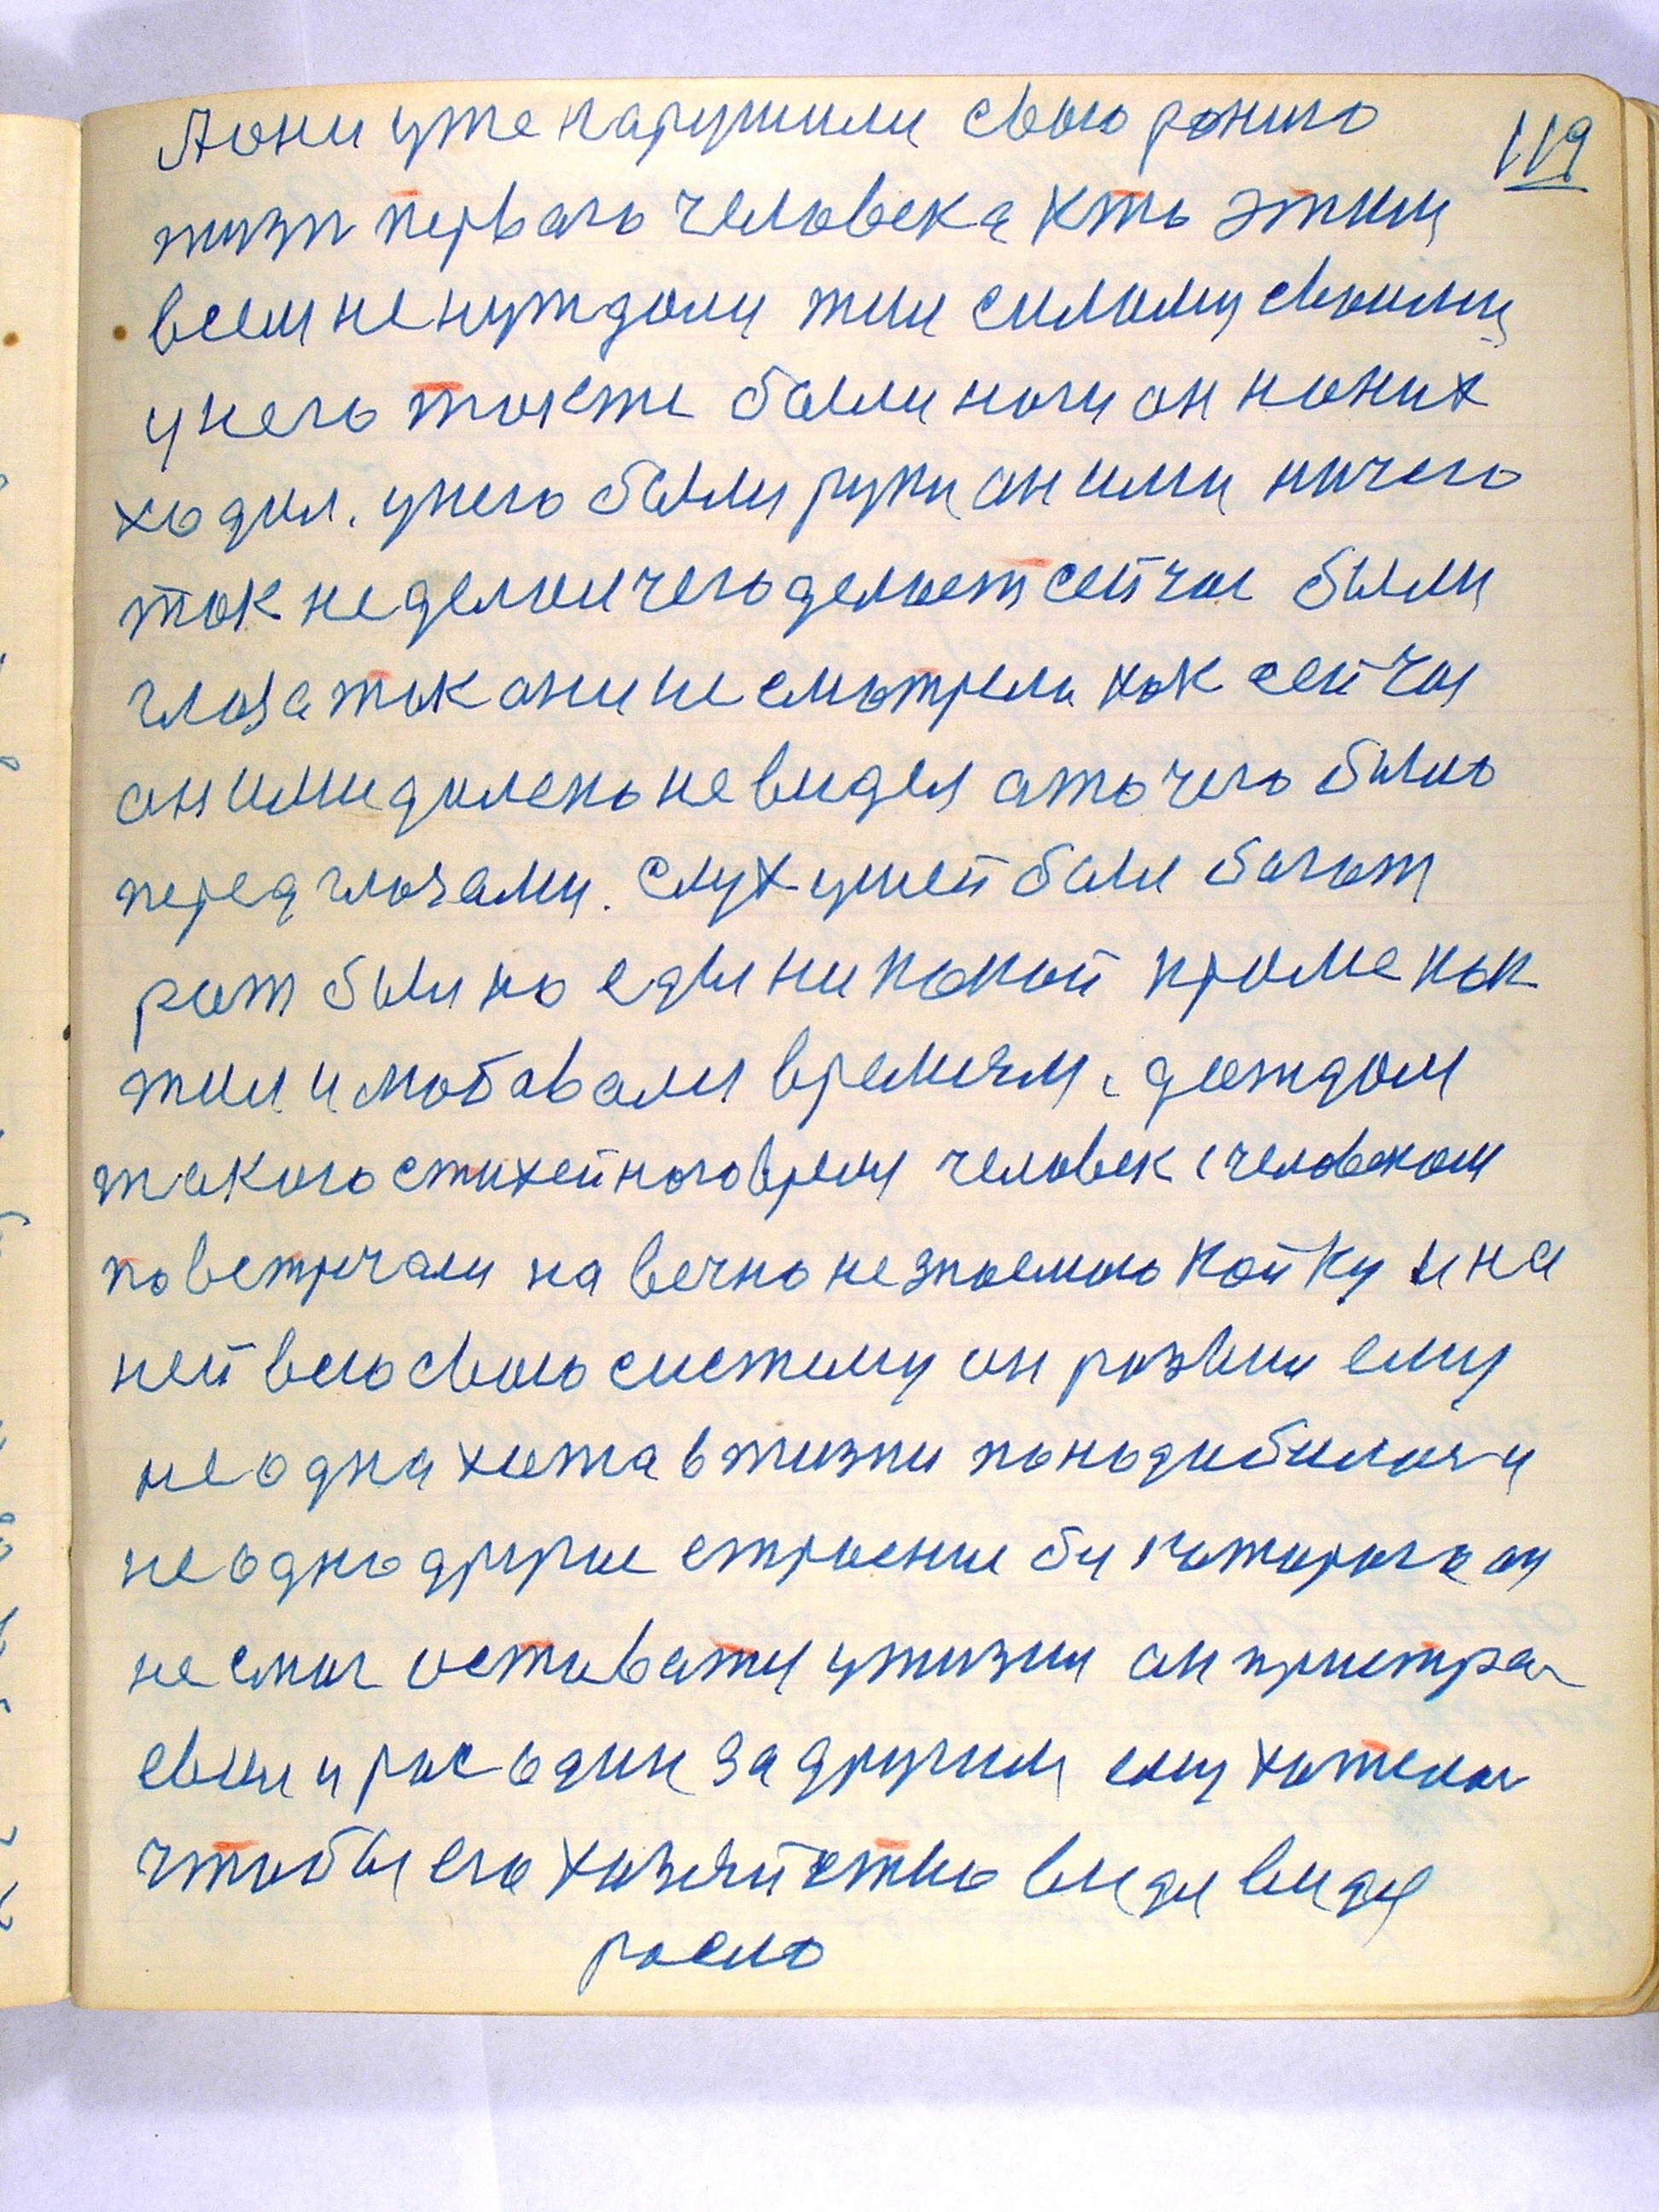 119
А они уже нарушили свою ронию
жизн первого человека кто этим
всем не нуждолц жил силому своимц
у него токже были ноги он на них
ходил. у него были руки он ими ничего
ток не делоил чего делоет сейчос были
глоза ток они не смотрели кок сейчоя
он ими долеко не видел а то чего было
перед глозами. слух ушей был богот
рот был но еды никокой кроме кок
жил и мобаволя времиям. дождом
такого стихейного время человек с человеком
повстречали на вечно незноемою койку и на
ней всю свою систему он розвил ему
не одна хота в жизни понодобилоя и
не одно другие строение биз которого он
не смог оставатц у жизни он пристра
евил и рос один за другим ему хотелоя
чтобы его хозяйство види види
росло